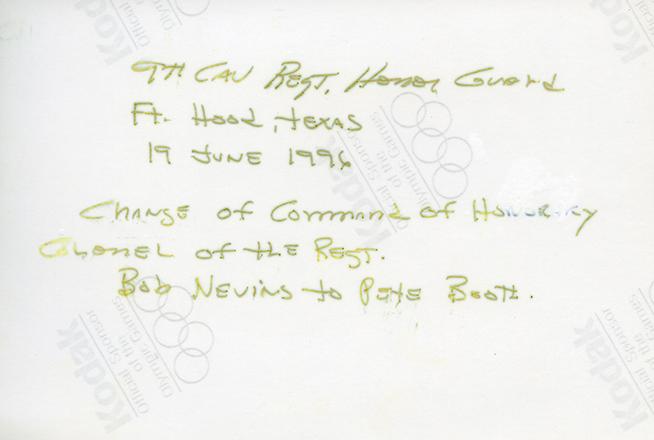 9TH CAV REGT. HONOR GUARD
Ft. Hood, TEXAS
19 JUNE 1996
CHANGE of Command of HONORARY
COLONEL of tHE REGT.
BOB NEVINS to PETE BOOTH.
Kodak
Official Sponsor
of the
Olympic Games
Kodak
Official Sponsor
of the
Olympic Games
Kodak
Official Sponsor
of the
Olympic Games
Kodak